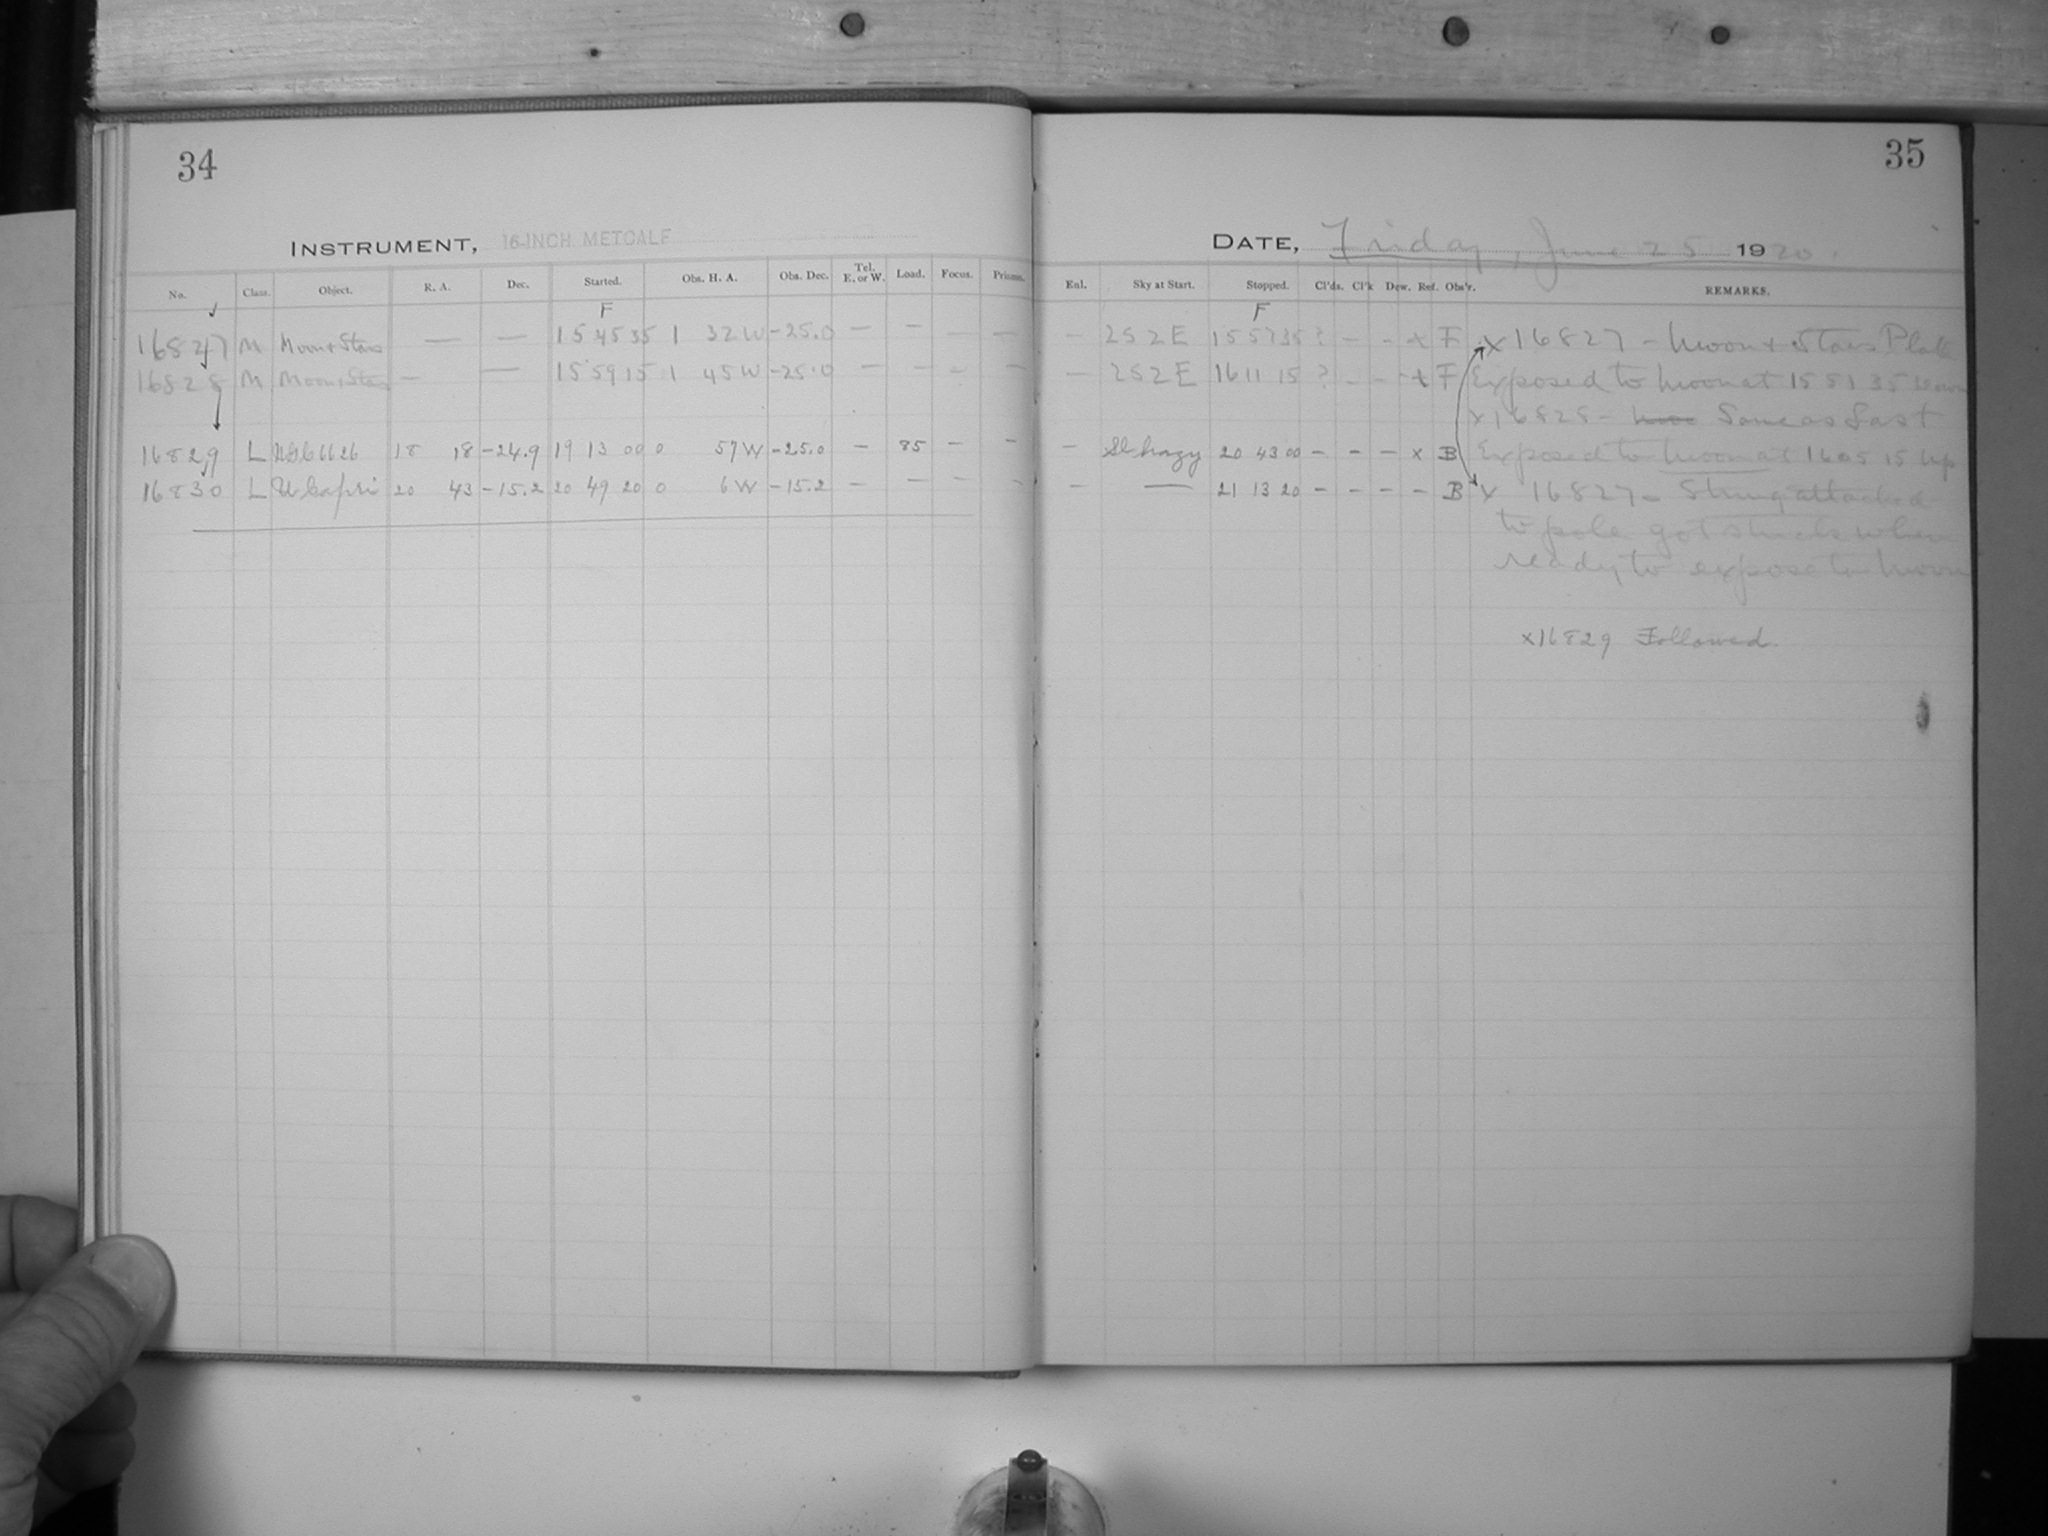 34
INSTRUMENT, 16-INCH METCALF
No. Class. Object. R. A. Dec. Started. Obs. H. A. Obs. Dec. Tel. E. or W. Load. Focus. Prisms.
F
16827 M Moon & Stars — — 15 45 35 1 32 W -25.0 — — — —
16828 M Moon & Stars — — 15 59 15 1 45 W -25.0 — — — —
16829 L NGC 6626 18 18 -24.9 19 13 00 0 57 W -25.0 — 85 — —
16830 L U Capri 20 43 -15.2 20 49 20 0 6 W -15.2 — — — —
35
DATE, Friday, June 25 1920.
Enl. Sky at Start. Stopped. Cl'ds. Cl'k Dew. Ref. Obs'r. REMARKS.
F
— 2S2E 15 57 35 ? - - x F x 16827 - Moon & Stars Plate
— 2S2E 16 11 15 ? - - x F Exposed to Moon at 15 51 35
x 16828 - Same as Last
— Sl. hazy 20 43 00 - - - x B Exposed to Moon at 16 05 15
— — 21 13 20 - - - - B x 16827 - String attached
to pole got stuck when
ready to expose to Moon
x 16829 Followed.